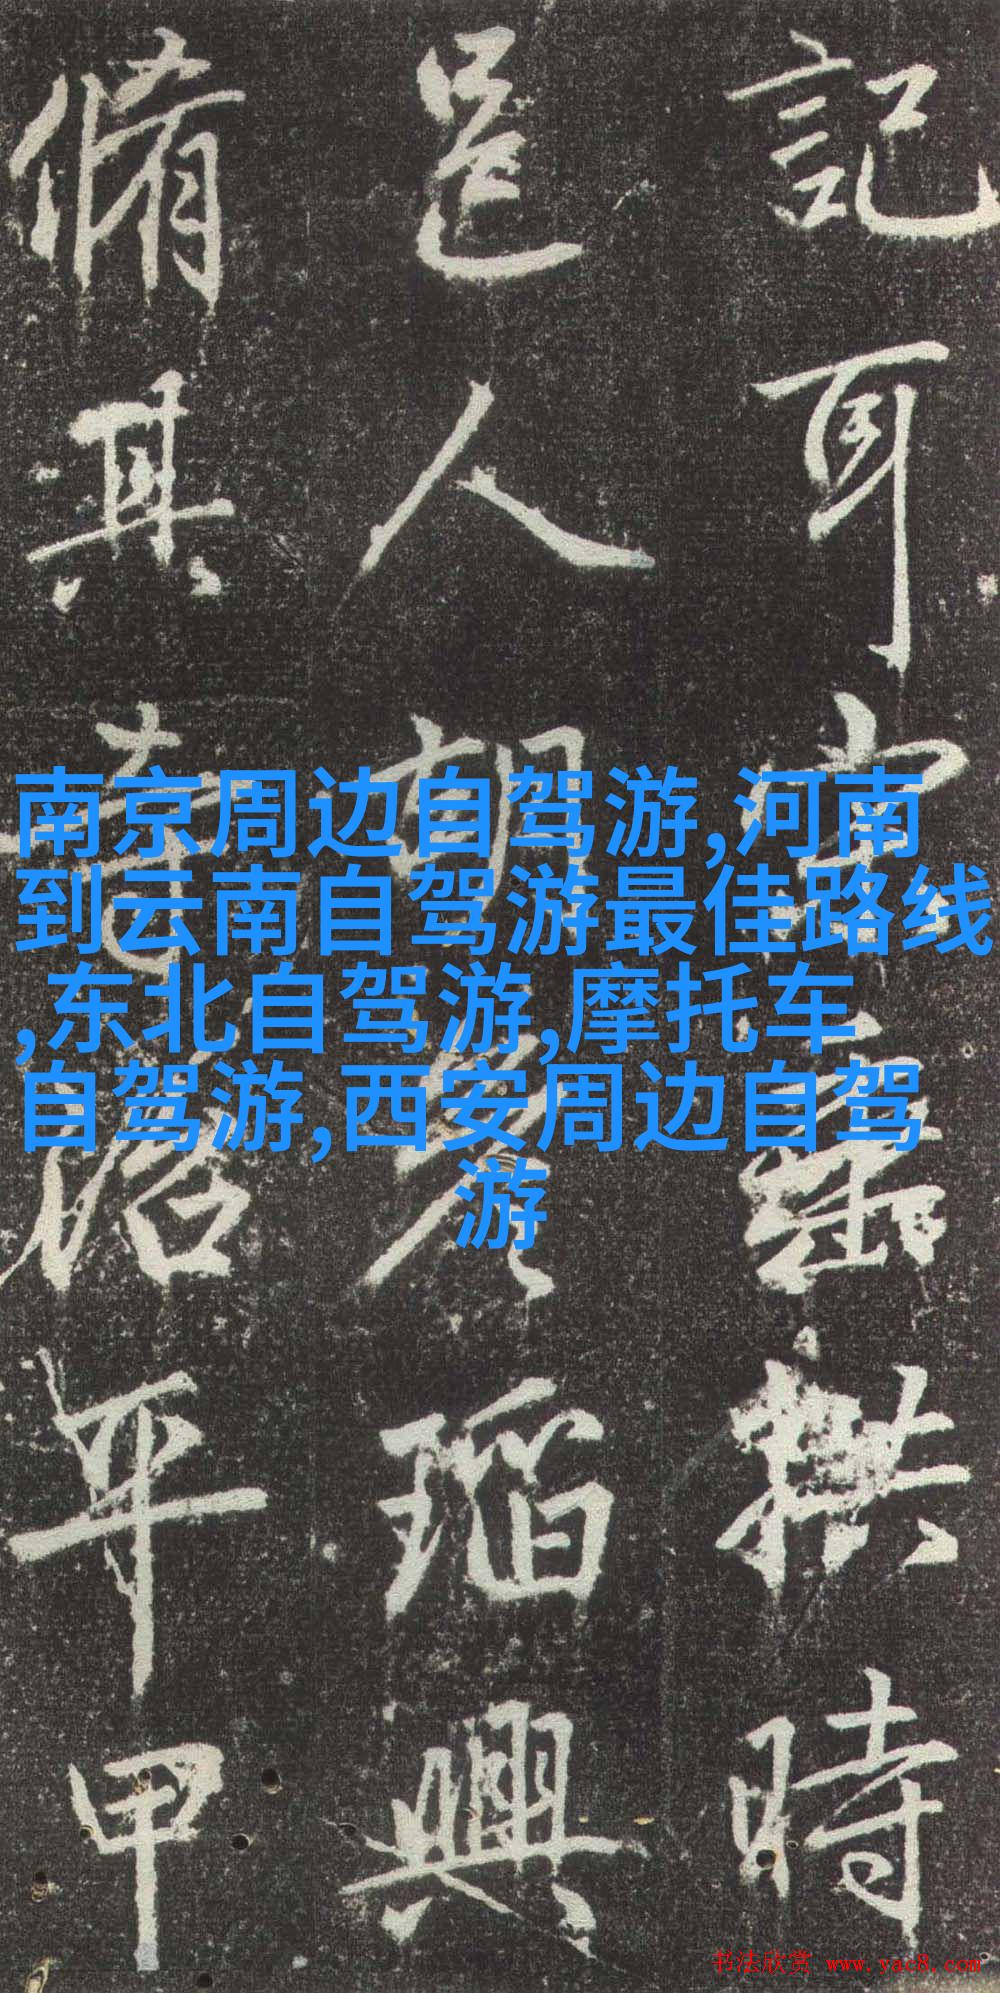 記耳宋拱時
邑人胡瑫興
脩其治平甲
南京周边自驾游,河南
到云南自驾游最佳路线
,东北自驾游,摩托车
自驾游,西安周边自驾
游
书法欣赏 www.yac8.com